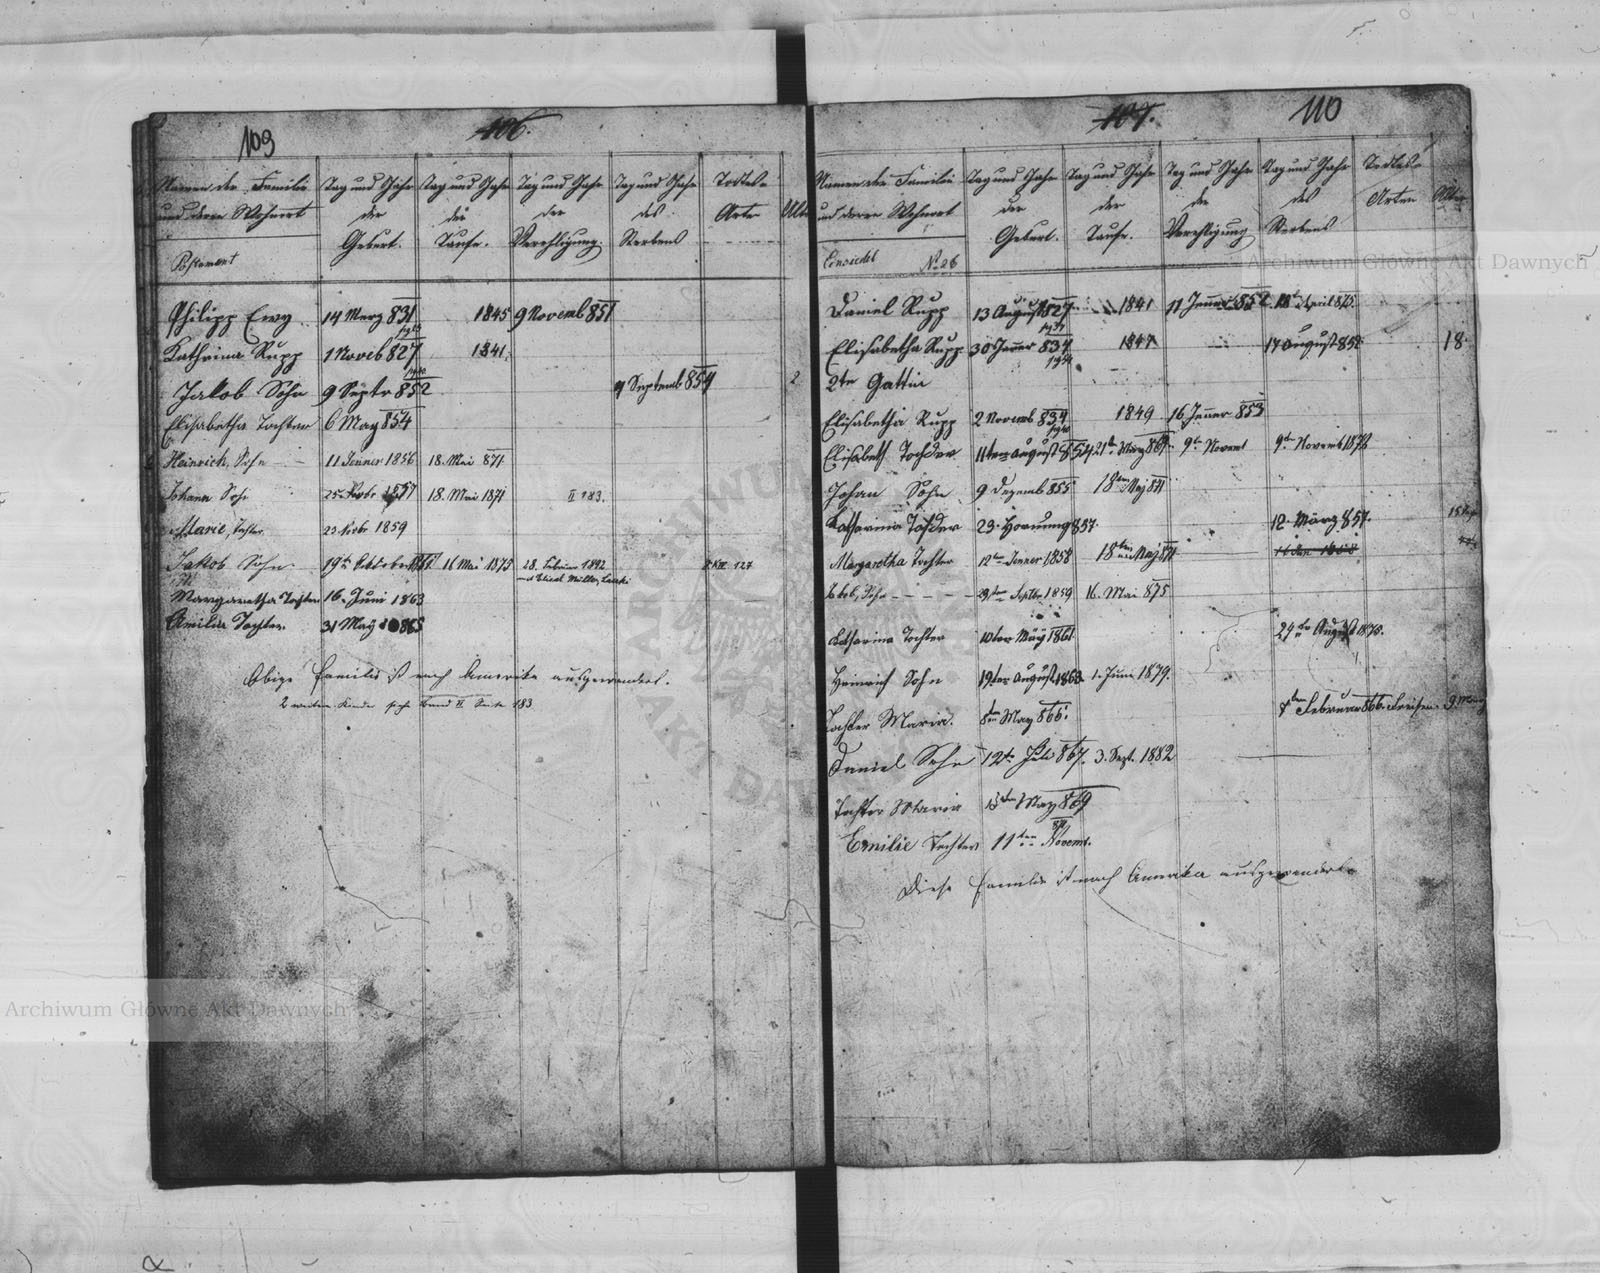 103
106.
Namen der Familie
und deren Wohnort
Tag und Jahr
der
Geburt.
Tag und Jahr
der
Taufe.
Tag und Jahr
der
Verehligung.
Tag und Jahr
des
Sterbens
Todtes-
Arten
Philipp Ewy 14 Merz 831 1845 9 Novemb 851
Kathrina Rupp 1 Noveb 827 1841.
Jakob Sohn 9 Septr 852 9 Septemb 854 2
Elisabetha Tochter 6 May 854
Heinrich, Sohn 11 Jenner 1856 18. Mai 871
Johann Sohn 1857 18. Mai 1871 II 183.
Marie, Tochter 1859
Jakob Sohn 19ten October 1861 16 Mai 1875 28. Februar 1892 127
Margaretha Tochter 16. Juni 1863
Amilia Tochter. 31 May 1865
Obige Familie ist nach Amerika ausgewandert.
2 weitere Kinder siehe Band II Seite 183
107.
110
Namen der Familie
und deren Wohnort
Einsiedel No 26
Tag und Jahr
der
Geburt.
Tag und Jahr
der
Taufe.
Tag und Jahr
der
Verehligung
Tag und Jahr
des
Sterbens
Todtes-
Arten
Alter
Daniel Rupp 13 August 827 1841 11 Jenner 852 18ten April 875.
Elisabetha Rupp 30 Jenner 834 1847 17 August 852 18
2te Gattin
Elisabetha Rupp 2 Novemb 834 1849 16 Jenner 853
Elisabeth Tochter 11ten August 854 21ten März 869 9ten Novemb 9ten Novemb 1872
Johan Sohn 9 Dezemb 855 18ten Maj 871
Katharina Tochter 23. Hornung 857. 12. März 857.
Margaretha Tochter 12ten Jenner 1858 18ten Maj 871
Jakob, Sohn 29ten Septbr 1859 16. Mai 875
Katharina Tochter 10ter Maÿ 1861 24ten August 1875.
Heinrich Sohn 19ter August 1863 1. Juni 1879.
Tochter Maria. 8ten May 866. Februar 866.
Daniel Sohn 12te Juli 867. 3. Sept. 1882
Tochter Maria May 869
Emilie Tochter 11ten Novemb. 871
Diese Familie ist nach Amerika ausgewandert.
Archiwum Główne Akt Dawnych
Archiwum Główne Akt Dawnych
ARCHIWUM
AKT DAWNYCH